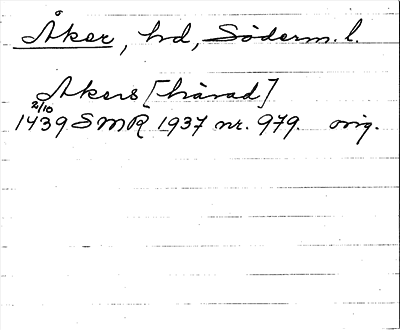 Åker, hd, Söderm. l.
Akers [härad]
2/10
1439 SMR 1937 nr. 979. orig.